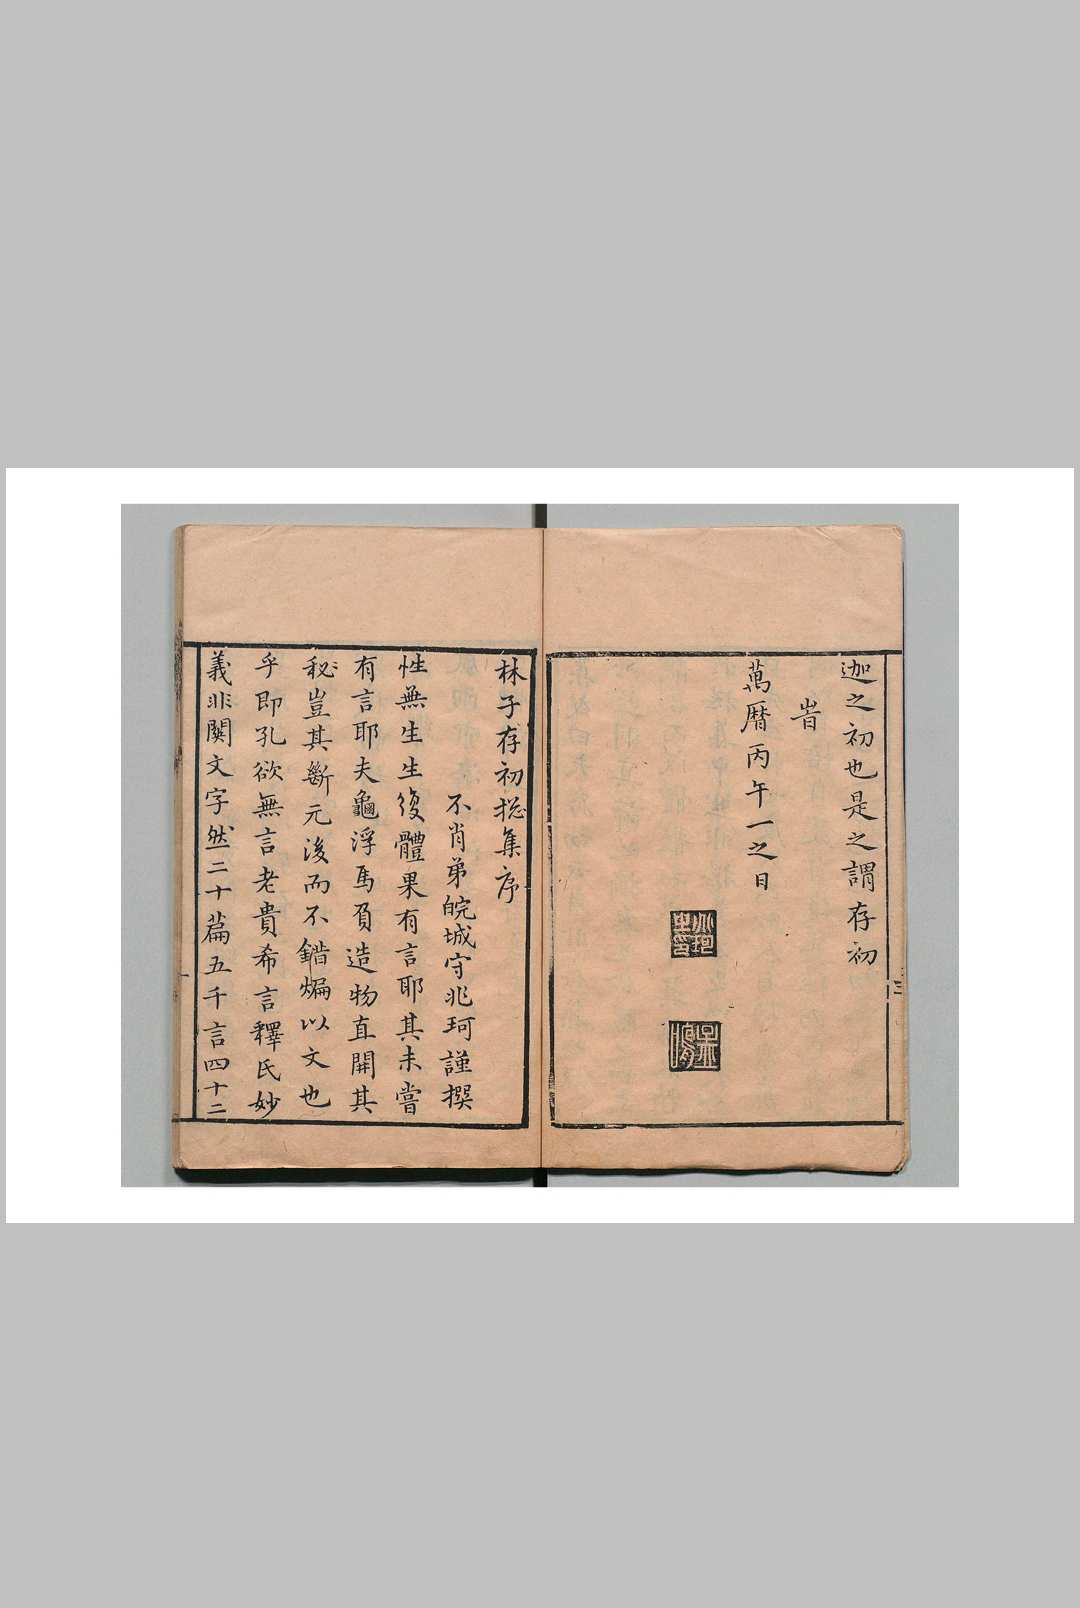 迦之初也是之謂存初
旹
萬曆丙午一之日
林子存初捴集序
不肖弟皖城守兆珂謹撰
性無生生復體果有言耶其未嘗
有言耶夫龜浮馬負造物直開其
秘豈其斲元後而不錯煸以文也
乎即孔欲無言老貴希言釋氏妙
義非関文字然二十篇五千言四十二